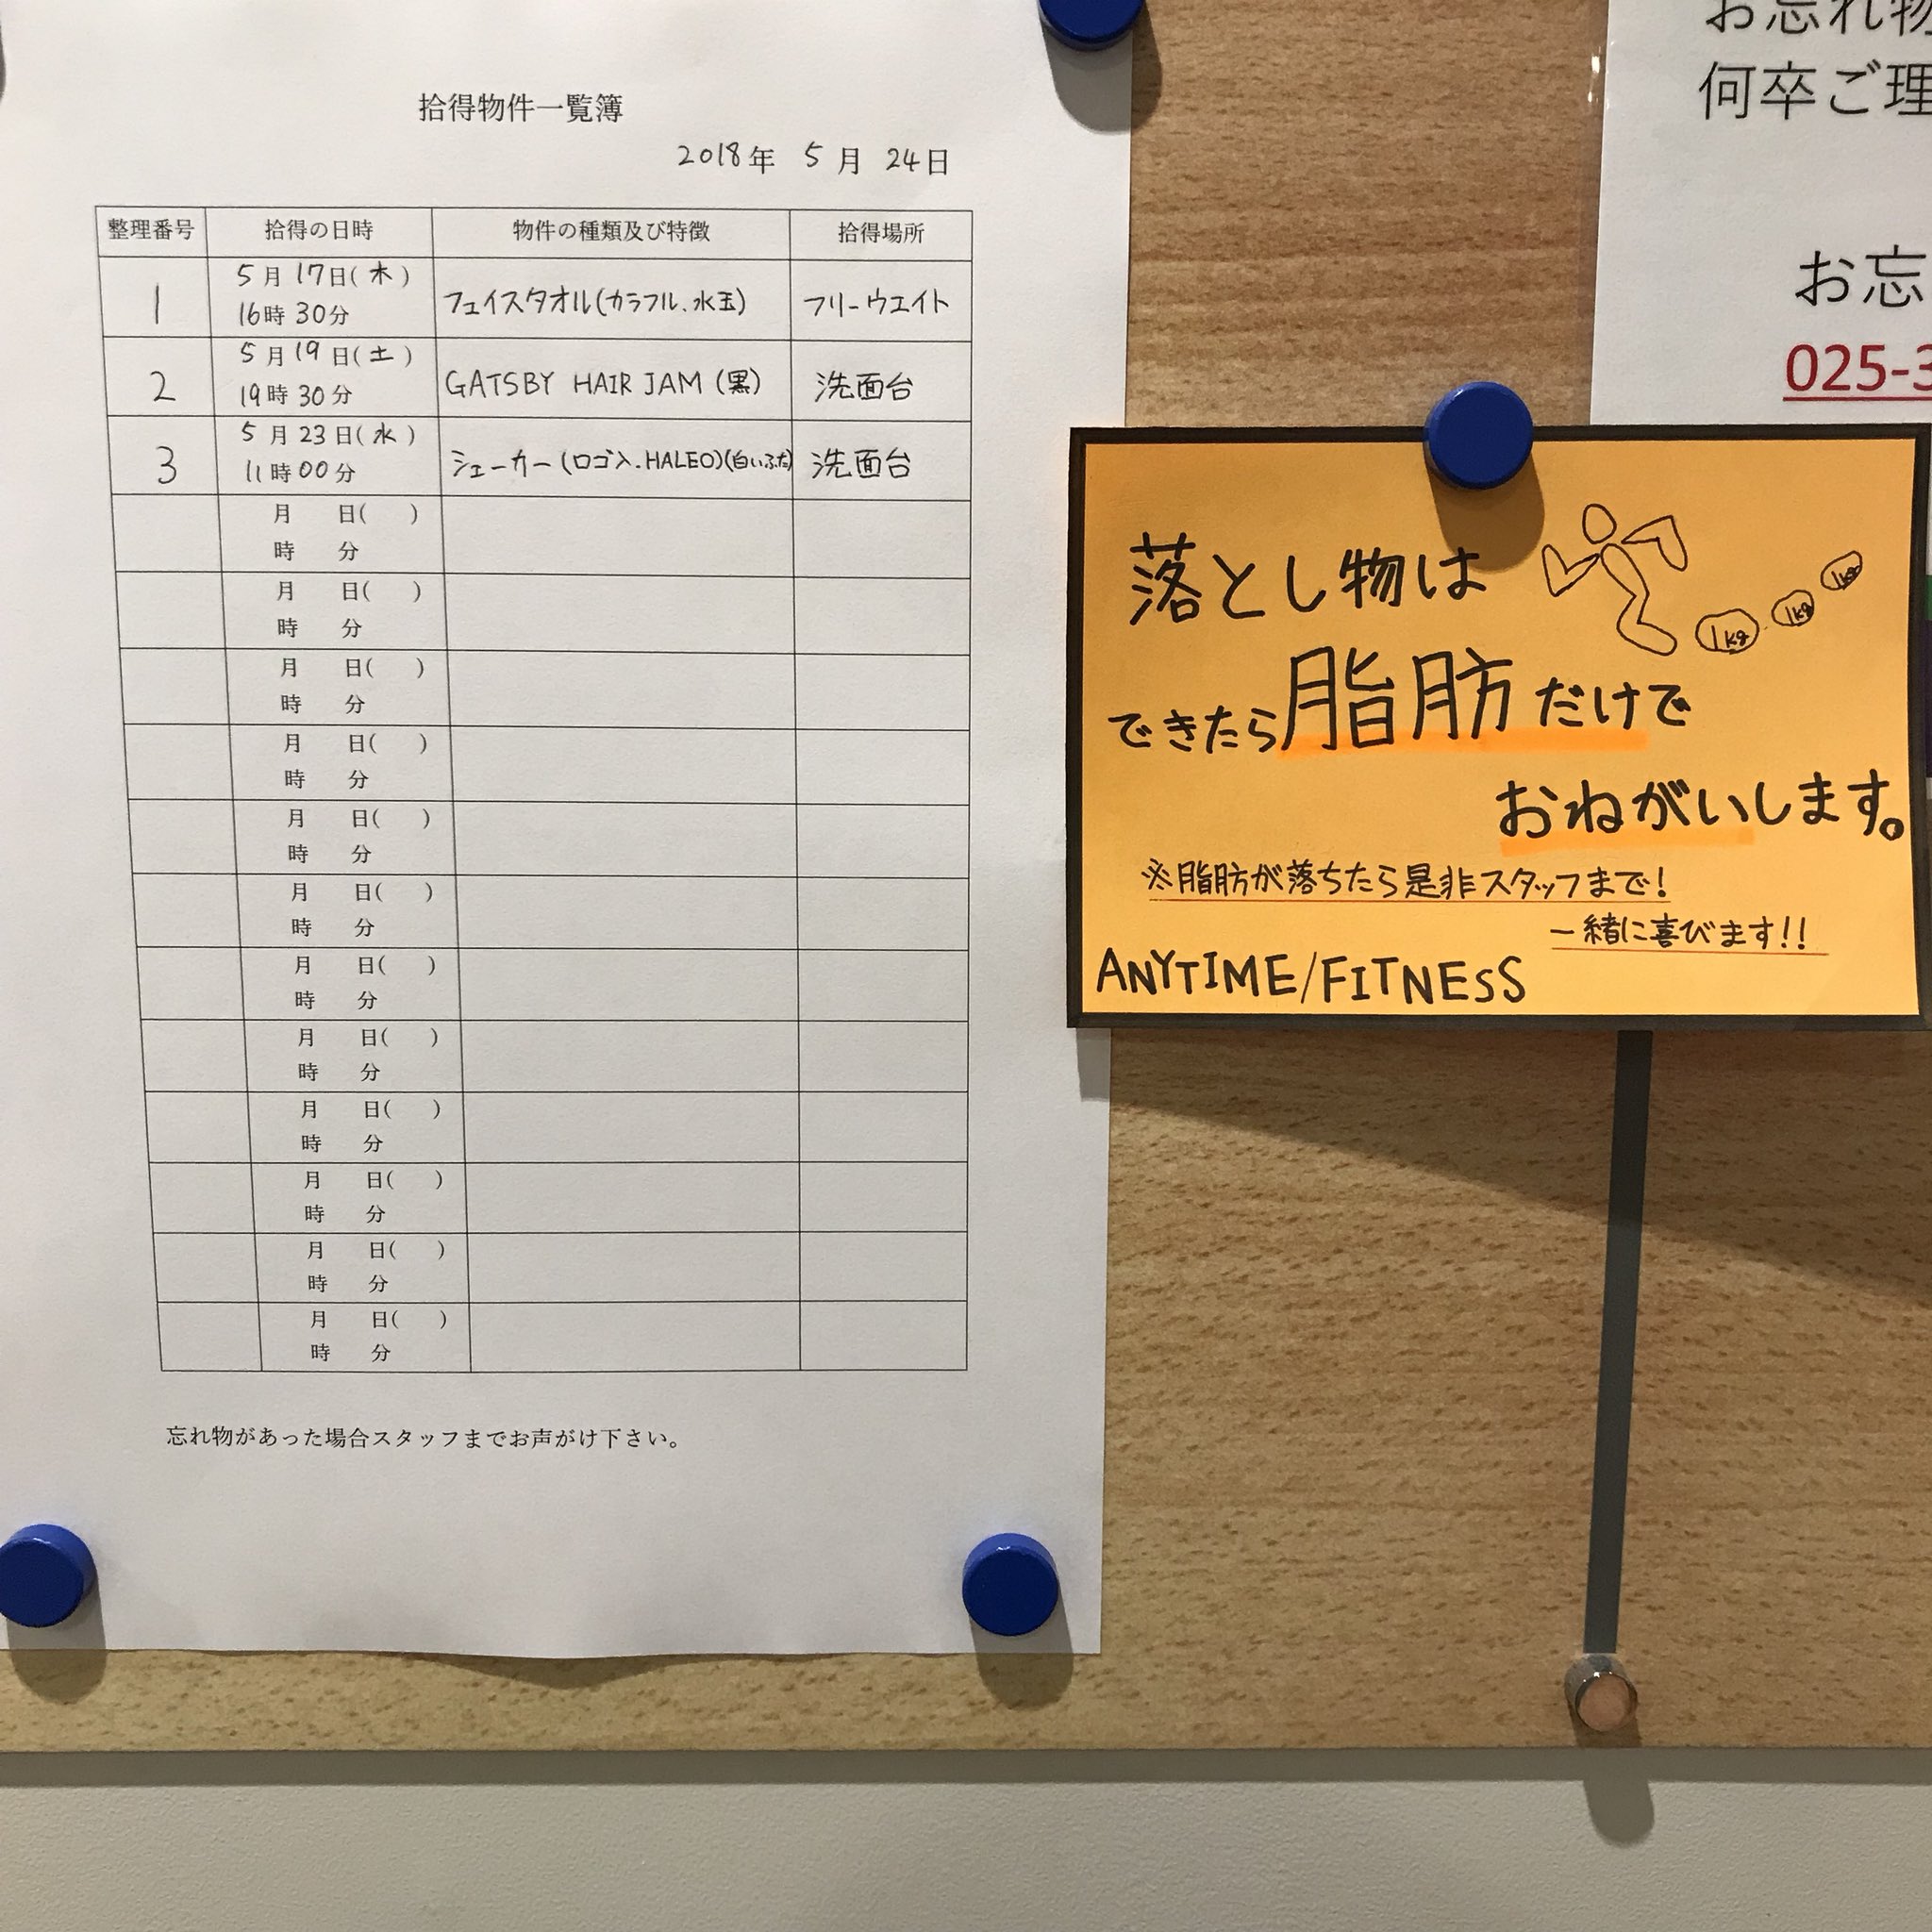 拾得物件一覧簿
2018年 5月 24日
整理番号 拾得の日時 物件の種類及び特徴 拾得場所
1 5月17日(木) 16時30分 フェイスタオル(カラフル、水玉) フリーウエイト
2 5月19日(土) 19時30分 GATSBY HAIR JAM (黒) 洗面台
3 5月23日(水) 11時00分 シェーカー(ロゴ入.HALEO)(白いふた) 洗面台
月 日( )
時 分
月 日( )
時 分
月 日( )
時 分
月 日( )
時 分
月 日( )
時 分
月 日( )
時 分
月 日( )
時 分
月 日( )
時 分
月 日( )
時 分
月 日( )
時 分
月 日( )
時 分
月 日( )
時 分
忘れ物があった場合スタッフまでお声がけ下さい。
お忘れ物
何卒ご理
お忘
025-3
落とし物は
1kg 1kg 1kg
できたら脂肪だけで
おねがいします。
※脂肪が落ちたら是非スタッフまで!
一緒に喜びます!!
ANYTIME/FITNESS